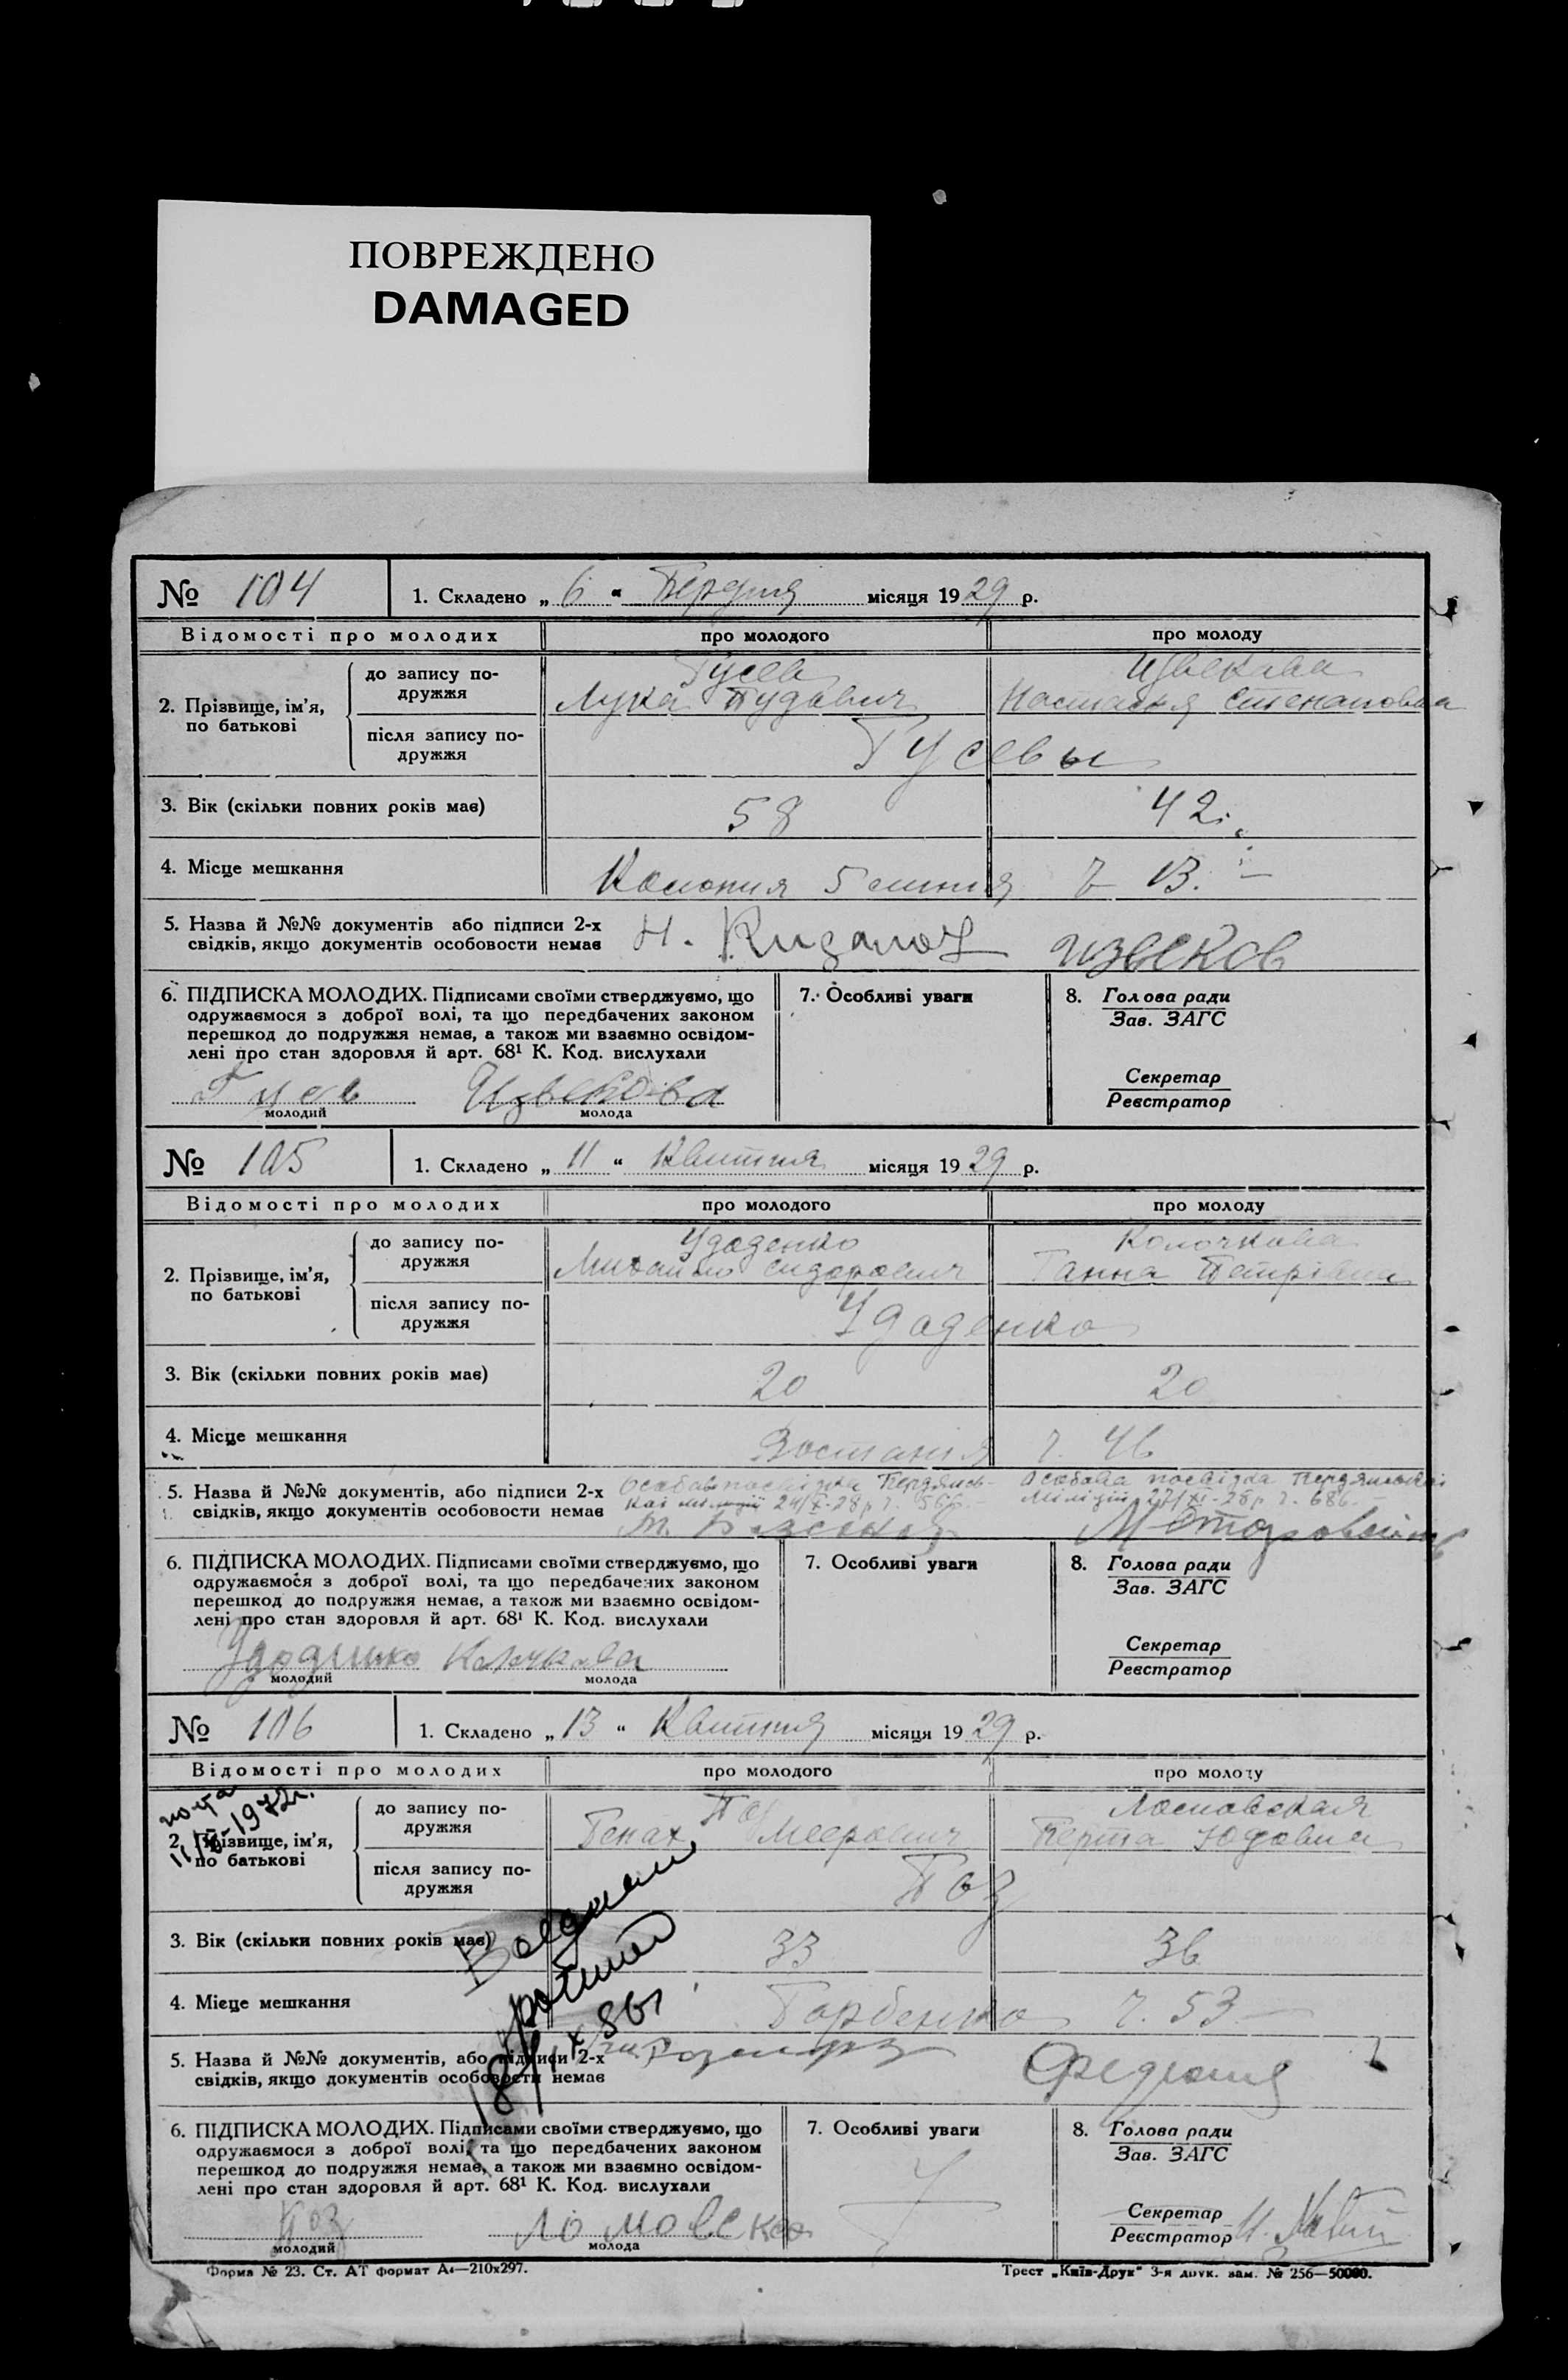 ПОВРЕЖДЕНО
DAMAGED
№ 104 1. Складено „ 6 “ місяця 1929 р.
Відомості про молодих про молодого про молоду
2. Прізвище, ім’я, по батькові
до запису по-
дружжя
Гусев
Лука
Извекова
Настасья Степановна
після запису по-
дружжя
Гусевы
3. Вік (скільки повних років має) 58 42
4. Місце мешкання Колония 5 линия 13.
5. Назва й №№ документів або підписи 2-х
свідків, якщо документів особовости немає Н. Извеков
6. ПІДПИСКА МОЛОДИХ. Підписами своїми стверджуємо, що
одружаємося з доброї волі, та що передбачених законом
перешкод до подружжя немає, а також ми взаємно освідом-
лені про стан здоровля й арт. 68¹ К. Код. вислухали
Извекова
молодий молода
7. Особливі уваги
8. Голова ради
Зав. ЗАГС
Секретар
Реєстратор
№ 105 1. Складено „ 11 “ Квитня місяця 1929 р.
Відомості про молодих про молодого про молоду
2. Прізвище, ім’я,
по батькові
до запису по-
дружжя
Удоденко
Михайло Сидорович
Колочкова
Ганна Петрівна
після запису по-
дружжя
Удоденко
3. Вік (скільки повних років має) 20 20
4. Місце мешкання ч. 46
5. Назва й №№ документів, або підписи 2-х
свідків, якщо документів особовости немає
Особова посвідка
Міліції
6. ПІДПИСКА МОЛОДИХ. Підписами своїми стверджуємо, що
одружаємося з доброї волі, та що передбачених законом
перешкод до подружжя немає, а також ми взаємно освідом-
лені про стан здоровля й арт. 68¹ К. Код. вислухали
Удоденко Колочкова
молодий молода
7. Особливі уваги
8. Голова ради
Зав. ЗАГС
Секретар
Реєстратор
№ 106 1. Складено „ 13 “ Квитня місяця 1929 р.
Відомості про молодих про молодого про молоду
2. Прізвище, ім’я,
по батькові
до запису по-
дружжя
Поз
Генах Меерович
Берта Юдовна
після запису по-
дружжя
Поз
3. Вік (скільки повних років має) 33 36
4. Місце мешкання ч. 53
5. Назва й №№ документів, або підписи 2-х
свідків, якщо документів особовости немає
6. ПІДПИСКА МОЛОДИХ. Підписами своїми стверджуємо, що
одружаємося з доброї волі, та що передбачених законом
перешкод до подружжя немає, а також ми взаємно освідом-
лені про стан здоровля й арт. 68¹ К. Код. вислухали
Поз
молодий молода
7. Особливі уваги
8. Голова ради
Зав. ЗАГС
Секретар
Реєстратор
Форма № 23. Ст. АТ формат А₄—210х297.
Трест „Київ-Друк“ 3-я друк. зам. № 256—50000.